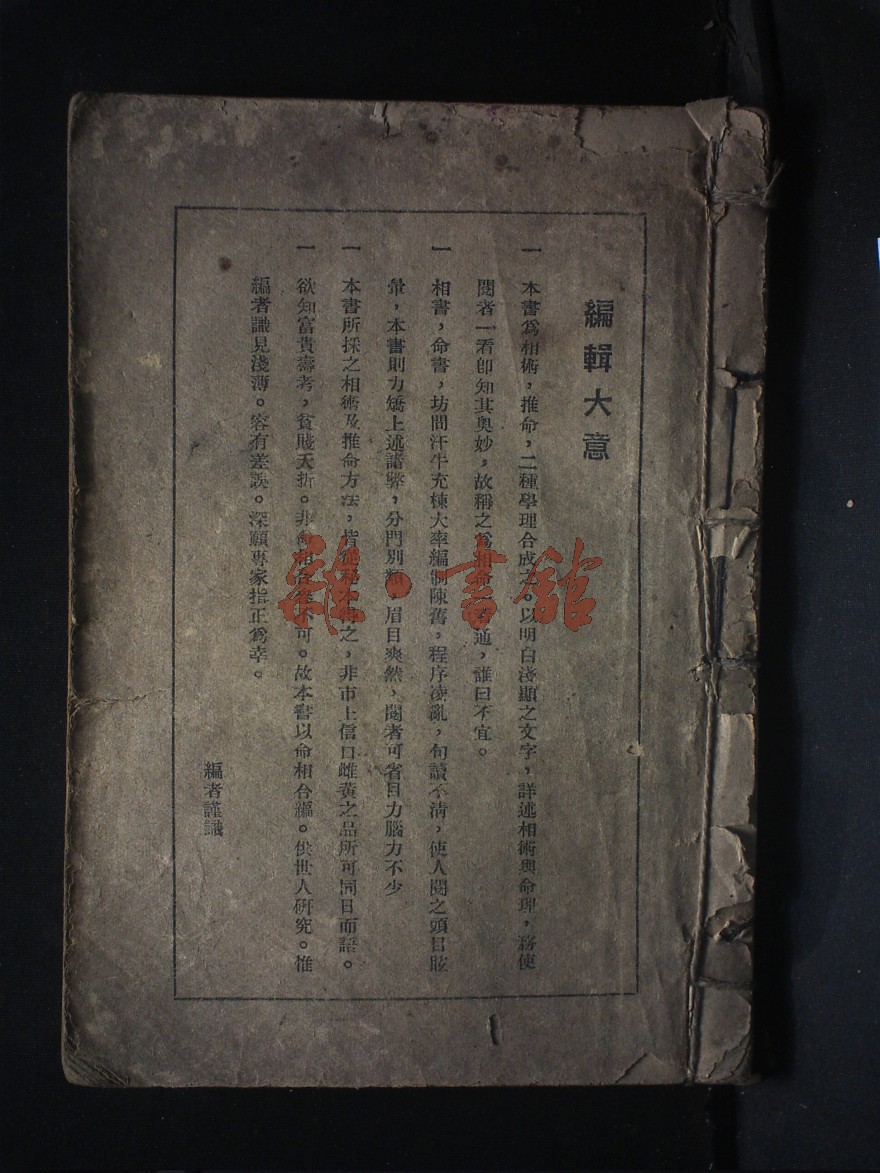 編輯大意
一 本書爲相術，推命，二種學理合成之。以明白淺顯之文字，詳述相術與命理，務使
閱者一看卽知其奧妙，故稱之爲相命一看通，誰曰不宜。
一 相書，命書，坊間汗牛充棟大率編制陳舊，程序凌亂，句讀不清，使人閱之頭目眩
暈，本書則力矯上述諸弊，分門別類，眉目爽然，閱者可省目力腦力不少
一 本書所採之相術及推命方法，皆從秘本得之，非市上信口雌黃之品所可同日而語。
一 欲知富貴壽考，貧賤夭折。非命相合參不可。故本書以命相合編。供世人研究。惟
編者識見淺薄。容有差誤。深願專家指正爲幸。
編者謹識
雜·書舘